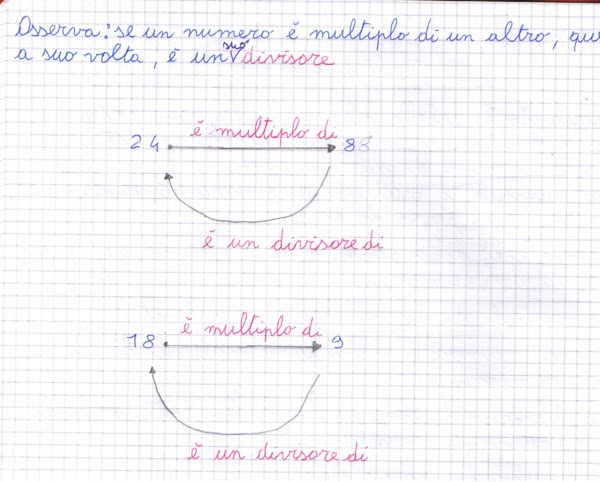 Osserva: se un numero è multiplo di un altro, que
a suo volta, è un suo divisore
è multiplo di
24 8
è un divisore di
è multiplo di
18 9
è un divisore di